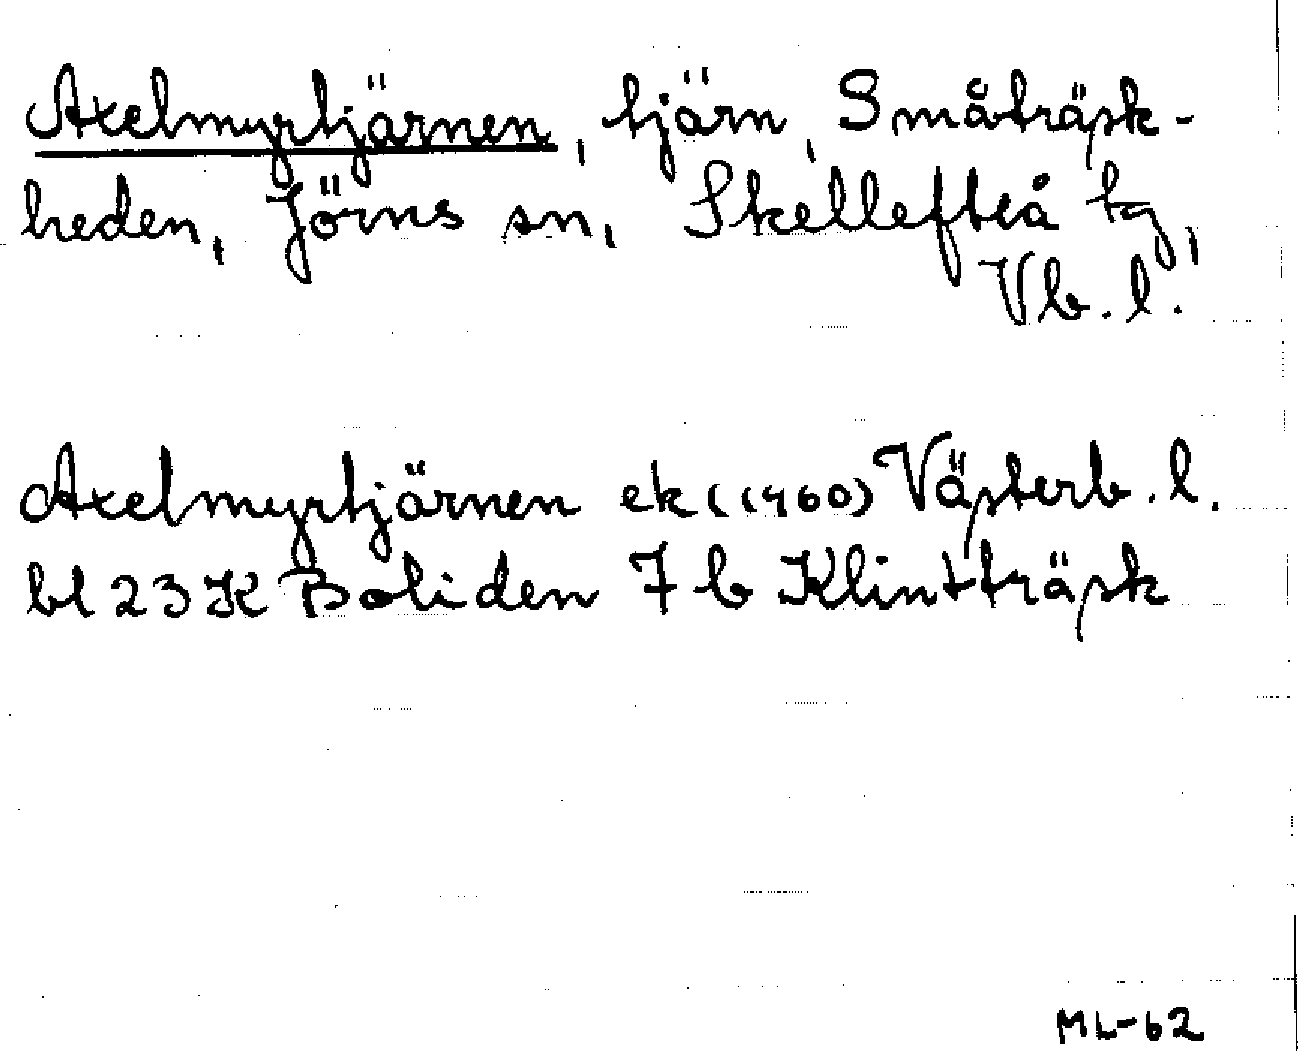 Axelmyrtjärnen, tjärn, Småträsk-
heden, Jörns sn, Skellefteå tg,
Vb. l.
Axelmyrtjärnen ek (1960) Västerb. l.
bl 23 K Boliden 7 b Klintträsk
ML-62